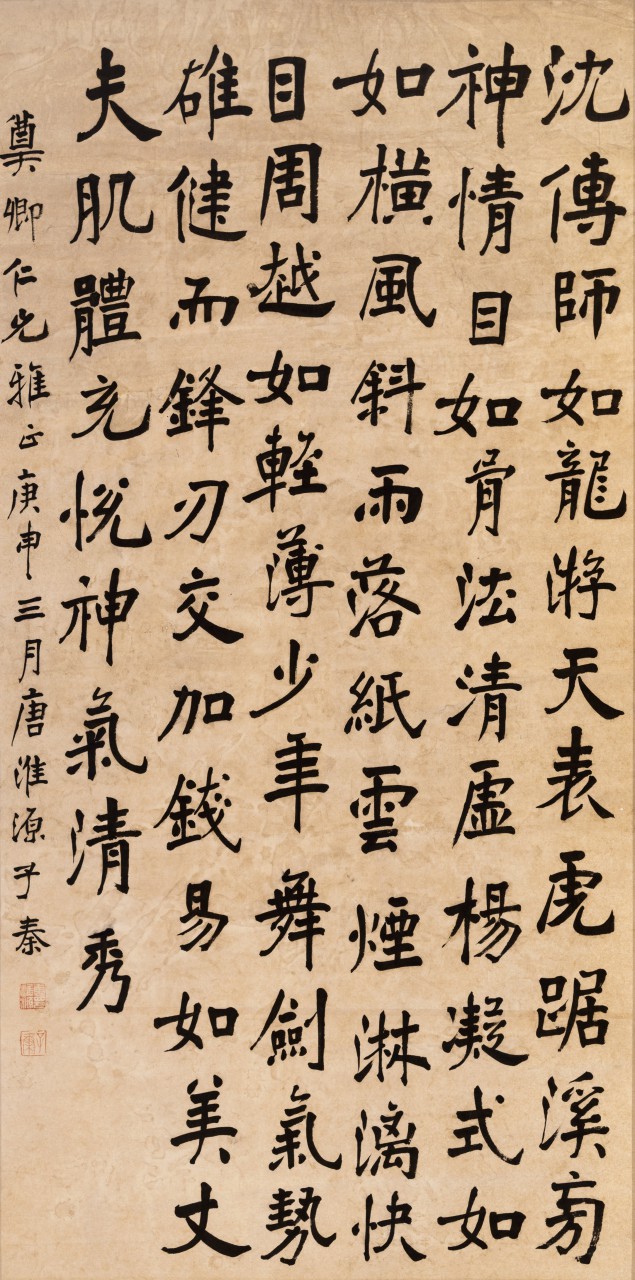 沈傳師如龍游天表虎踞溪旁
神情自如骨法清虛楊凝式如
如橫風斜雨落紙雲煙淋漓快
目周越如輕薄少年舞劍氣勢
雄健而鋒刃交加錢易如美丈
夫肌體充悅神氣清秀
卿仁兄雅正庚申三月唐淮源子秦